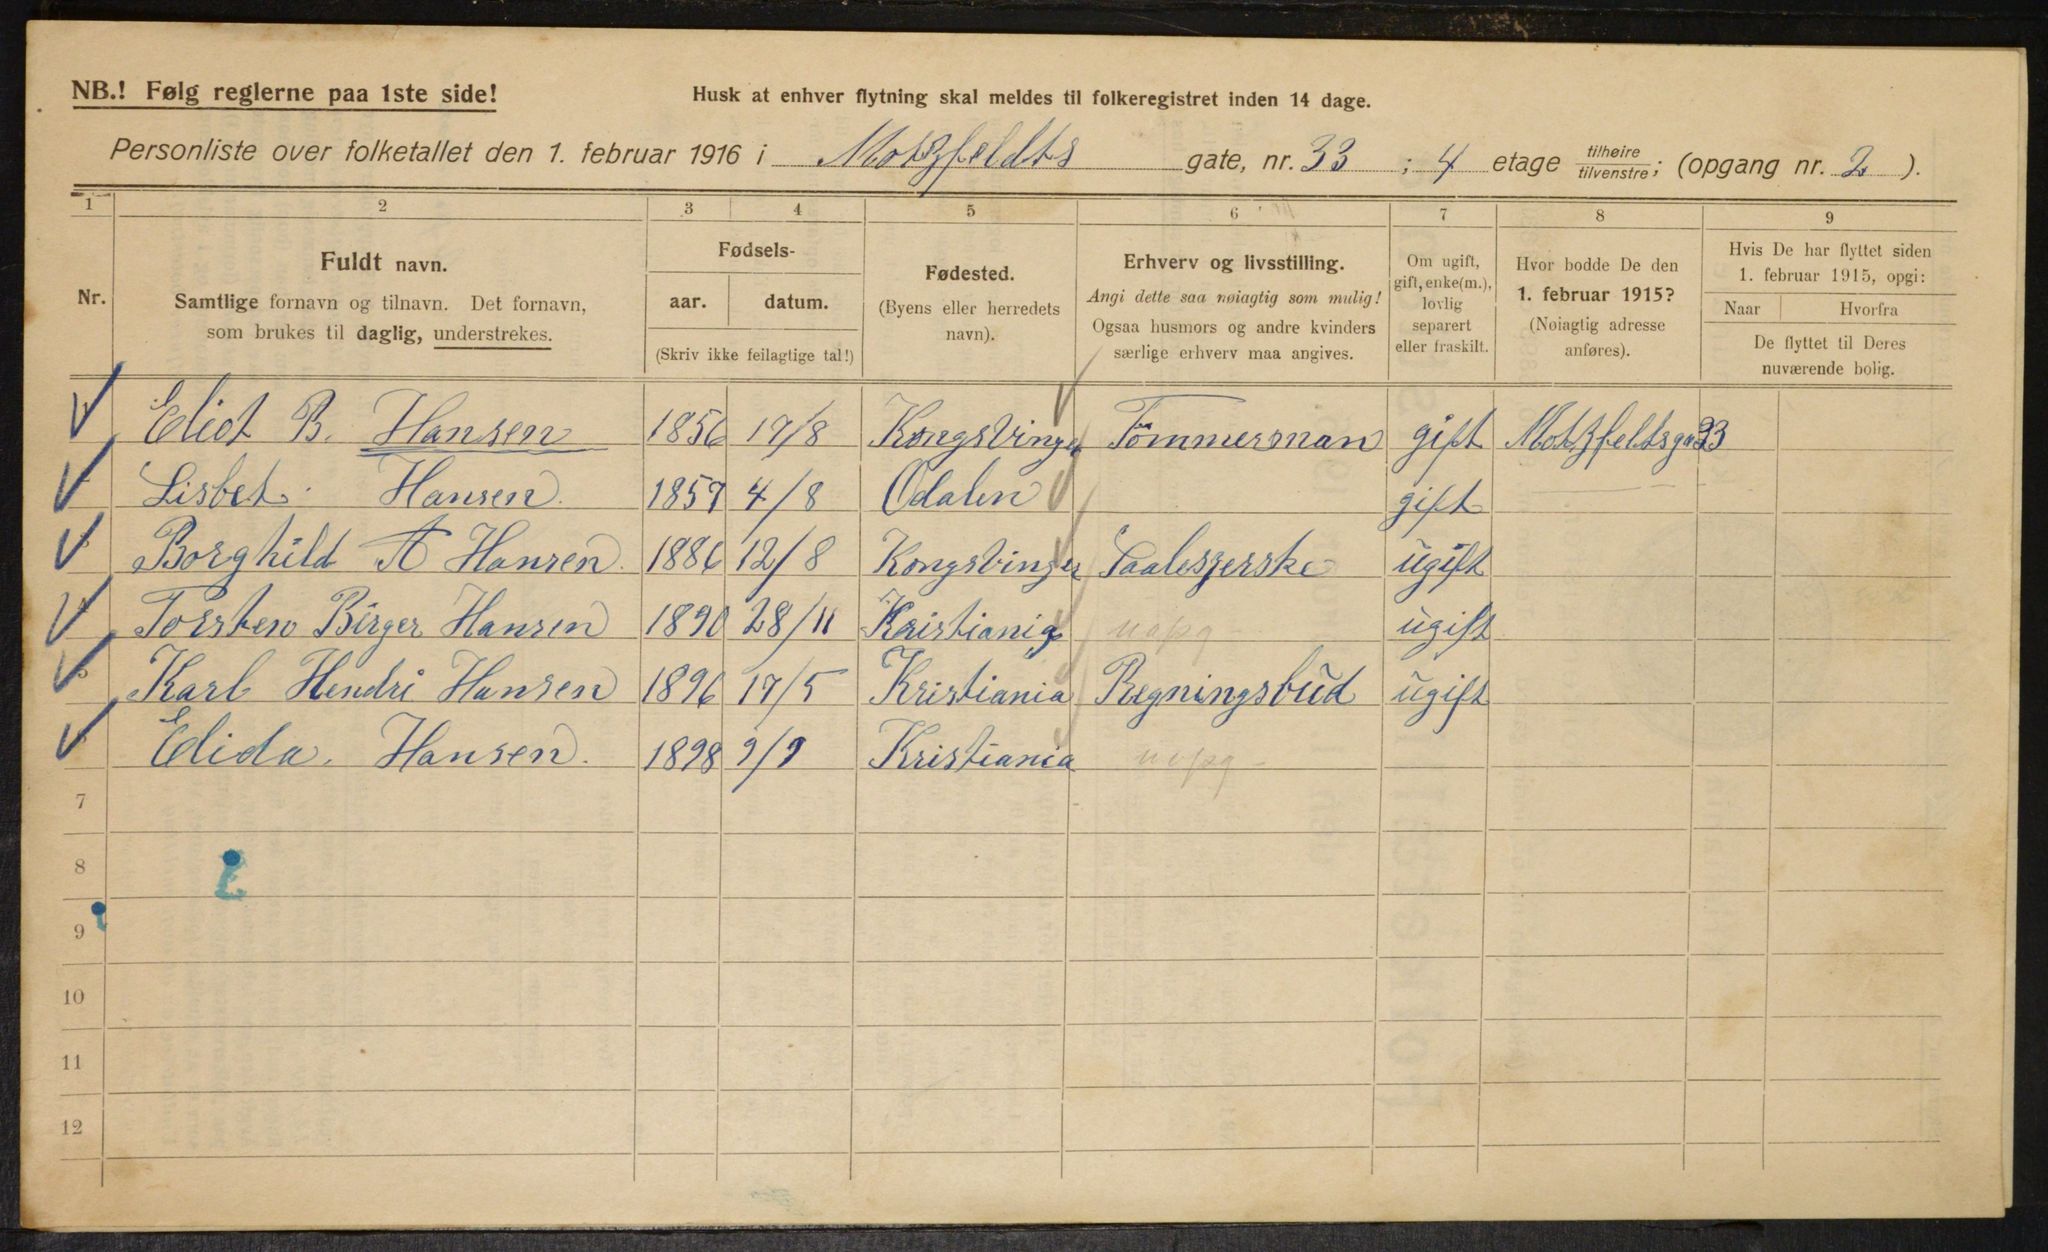 NB.! Følg reglerne paa 1ste side!
Husk at enhver flytning skal meldes til folkeregistret inden 14 dage.
Personliste over folketallet den 1. februar 1916 i Motzfeldts gate, nr. 33 ; 4 etage tilhøire/tilvenstre; (opgang nr. 2 ).
1 2 3 4 5 6 7 8 9
Nr.
Fuldt navn.
Samtlige fornavn og tilnavn. Det fornavn,
som brukes til daglig, understrekes.
Fødsels-
aar. datum.
(Skriv ikke feilagtige tal!)
Fødested.
(Byens eller herredets
navn).
Erhverv og livsstilling.
Angi dette saa nøiagtig som mulig!
Ogsaa husmors og andre kvinders
særlige erhverv maa angives.
Om ugift,
gift, enke(m.),
lovlig
separert
eller fraskilt.
Hvor bodde De den
1. februar 1915?
(Nøiagtig adresse
anføres).
Hvis De har flyttet siden
1. februar 1915, opgi:
Naar Hvorfra
De flyttet til Deres
nuværende bolig.
Eliot B. Hansen 1856 17/8 Kongsvinger Tömmerman gift Motzfeltsga 33
Lisbet Hansen 1857 4/8 Odalen gift
Borghild A Hansen 1886 12/8 Kongsvinger ugift
Torsten Birger Hansen 1890 28/11 Kristiania uopg ugift
Karl Hendri Hansen 1896 17/5 Kristiania Regningsbud ugift
Elida Hansen 1898 9/9 Kristiania uopg
7
8
9
10
11
12